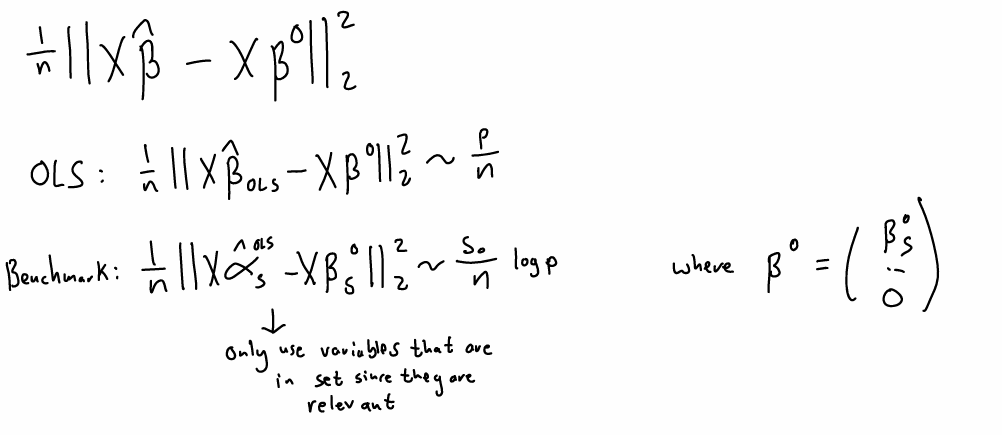 1/n ||Xβ̂ − Xβ⁰||₂²
OLS: 1/n ||Xβ̂_OLS − Xβ⁰||₂² ~ p/n
Benchmark: 1/n ||Xα̂_S^OLS − Xβ_S⁰||₂² ~ S₀/n log p where β⁰ = (β_S⁰ .. 0)
↓
Only use variables that are
in set since they are
relevant